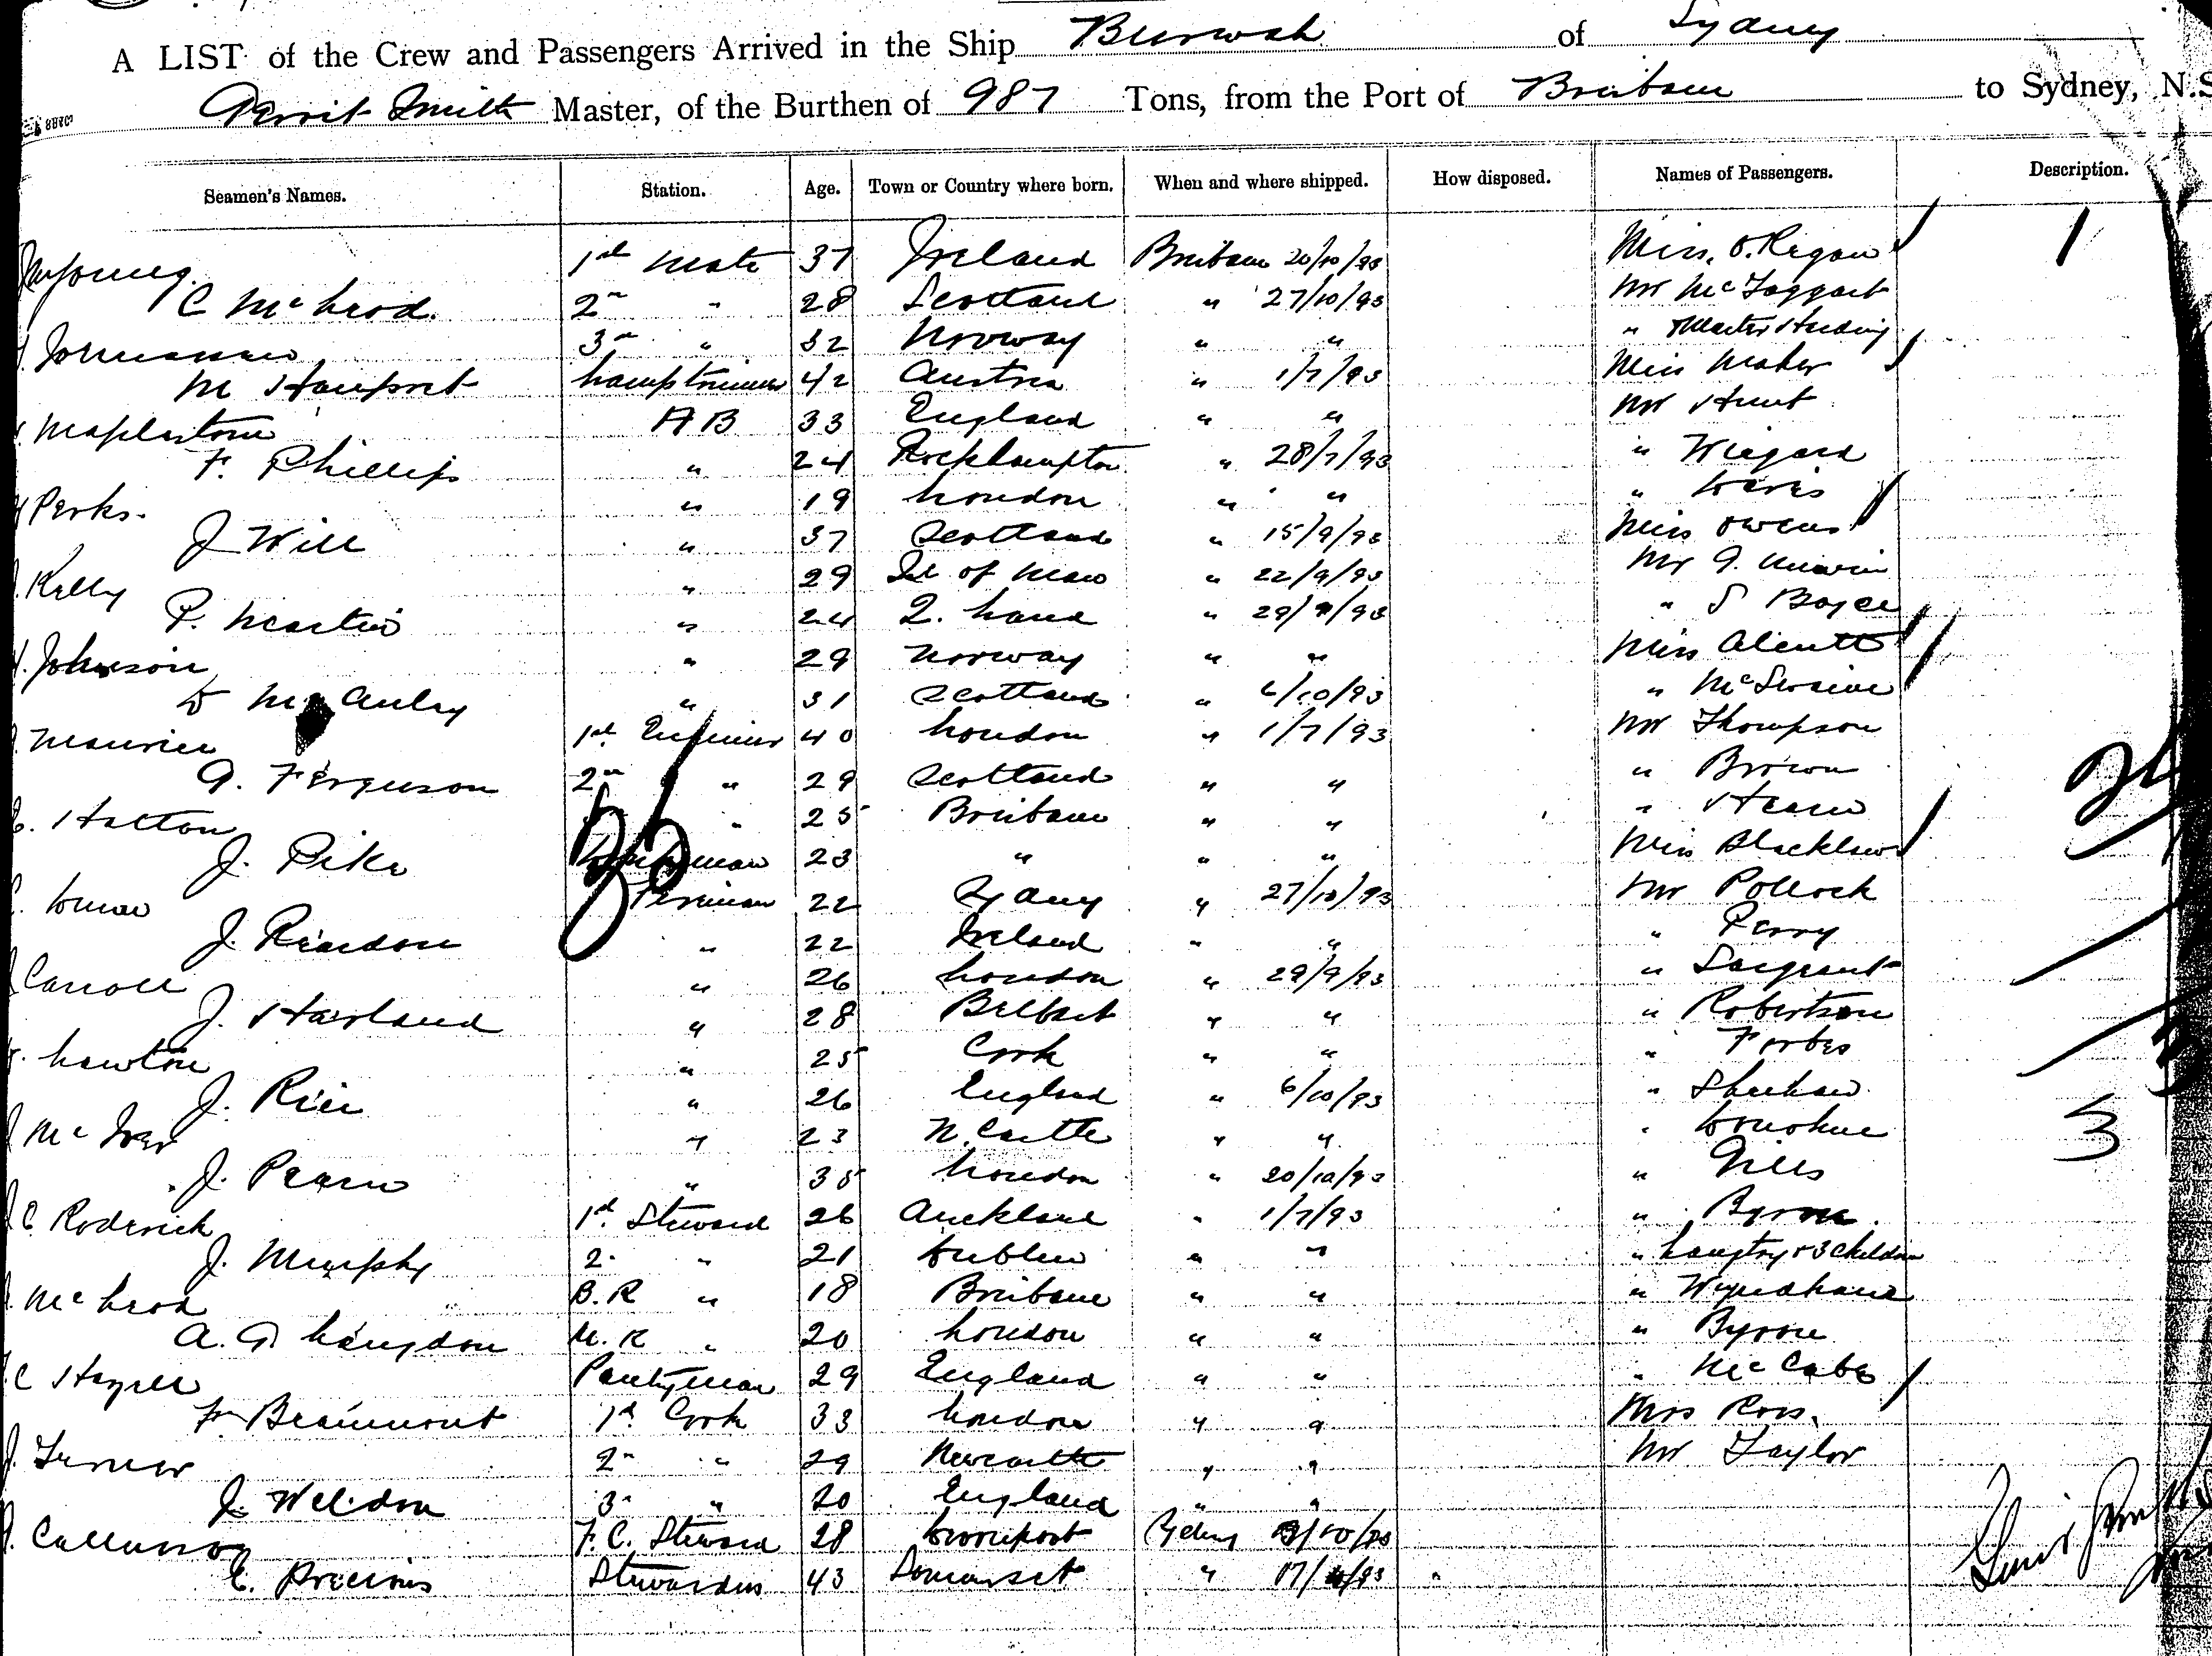 A LIST of the Crew and Passengers Arrived in the Ship Burwah of Sydney
Gerrit Smith Master, of the Burthen of 987 Tons, from the Port of Brisbane to Sydney, N.S
Seamen's Names. Station. Age. Town or Country where born. When and where shipped. How disposed. Names of Passengers. Description.
Young 1st Mate 37 Ireland Brisbane 20/10/93 Miss O.Regan 1
C McLeod. 2nd " 28 Scotland " 27/10/93 Mr McTaggart
Johnassen 3rd " 32 Norway " " " & Master Harding
M Hausprot Lamptrimmer 42 Austria " 1/7/93 Miss Maher
Maplestone AB 33 England " " Mr Hunt
F. Phillips " 24 Rockhampton " 28/7/93 " Wiegard
Perks. " 19 London " " " Davis
J Will " 37 Scotland " 15/9/93 Miss Owens
Kelly " 29 Isl of Man " 22/9/93 Mr G. Unwin
P. Martin " 24 Q. Land " 29/9/93 " S Boyce
Johnson " 29 Norway " " Miss Alcutt
D McAuley " 31 Scotland " 6/10/93 " McSwaine
Maurice 1st Engineer 40 London " 1/7/93 Mr Thompson
A. Ferguson 2nd " 29 Scotland " " " Brown
Hatton " 25 Brisbane " " " Hearn
J. Pike 23 " " " Miss Blacklaw
Fireman 22 Sydney " 27/10/93 Mr Pollock
J. Reardon " 22 Ireland " " " Perry
Carroll " 26 London " 29/9/93 " Sargeant
J. Harland " 28 Belfast " " " Robertson
Lawton " 25 Cork " " " Forbes
J. Rice " 26 England " 6/10/93 " Sheehan
McIver " 23 N.Castle " " " Donohue 3
J. Pearn " 35 London " 20/10/93 " Giles
C Roderick 1st Steward 26 Auckland " 1/7/93 " Byrne
J. Murphy 2nd " 21 Dublin " " " Langtry & 3 Children
McLeod B.R " 18 Brisbane " " " Wyndham
A. G Langdon M.R " 20 London " " " Byrne
C Hazell Pantryman 29 England " " " McCabe
Beaumont 1st Cook 33 London " " Mrs Ross.
J. Turner 2nd " 29 Newcastle " " Mr Taylor
J. Weldon 3rd " 20 England " "
Callanan F.C. Steward 28 Devonport Sydney /10/93
E. Precious Stewardess 43 Somerset " 17/ /93